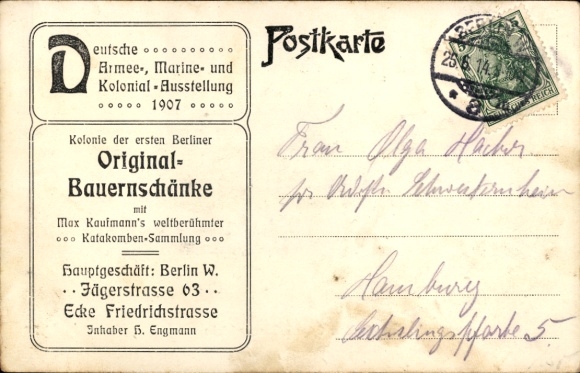 Deutsche
Armee-, Marine- und
Kolonial-Ausstellung
1907
Kolonie der ersten Berliner
Original-
Bauernschänke
mit
Max Kaufmann's weltberühmter
Katakomben-Sammlung
Hauptgeschäft: Berlin W.
Jägerstrasse 63
Ecke Friedrichstrasse
Inhaber H. Engmann
Postkarte
BERLIN
25.6.14
* 8
REICH
Frau Olga
Schwesternheim
Hamburg
5.